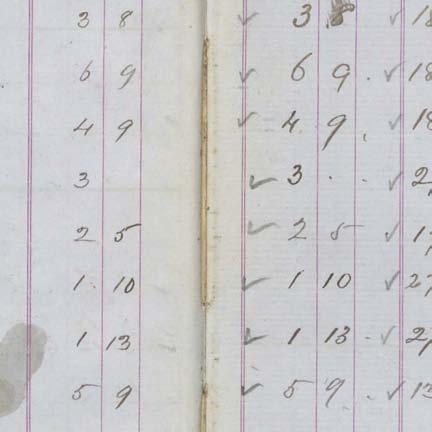 3 8 ✓ 3 8 ✓ 18
6 9 ✓ 6 9 . ✓ 18
4 9 ✓ 4 9 . ✓ 18
3 ✓ 3 . . ✓ 2
2 5 ✓ 2 5 ✓
1 10 ✓ 1 10 ✓ 27
1 13 ✓ 1 13 . ✓ 2
5 9 ✓ 5 9 . ✓ 13